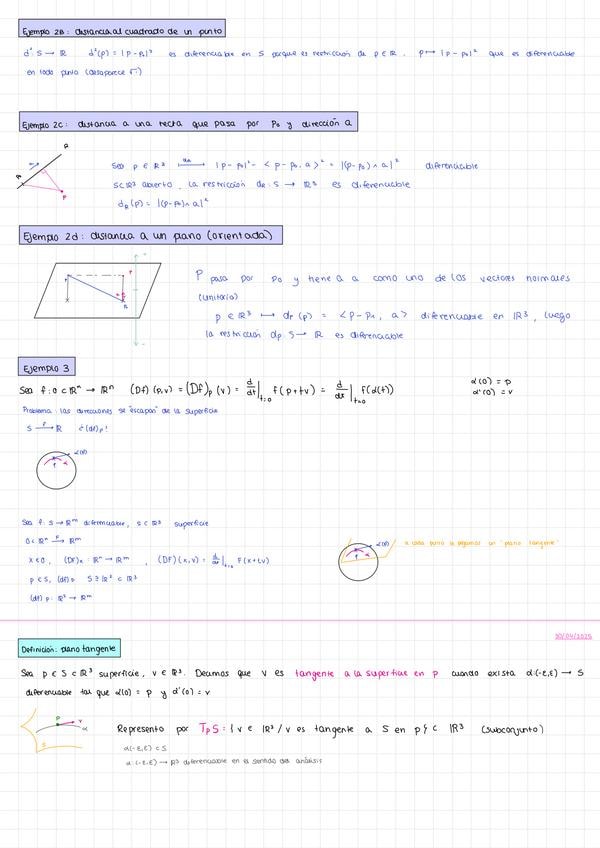 Ejemplo 2B: distancia al cuadrado de un punto
d² S → ℝ d²(p) = |p-p₀|² es diferenciable en S porque es restricción de p ∈ ℝ. p ↦ |p-p₀|² que es diferenciable
en todo punto (desaparece √·)
Ejemplo 2c: distancia a una recta que pasa por p₀ y dirección a
R
Sea p ∈ ℝ³ ⟼ |p-p₀|² - <p-p₀, a>² = |(p-p₀)∧a|² diferenciable
S⊂ℝ³ abierto, la restricción d_R: S → ℝ³ es diferenciable
d_R(p) = |(p-p₀)∧a|²
Ejemplo 2d: distancia a un plano (orientada)
P pasa por p₀ y tiene a a como uno de los vectores normales
(unitario)
p ∈ ℝ³ ⟼ d_P(p) = <p-p₀, a> diferenciable en ℝ³, luego
la restricción d_P S → ℝ es diferenciable
Ejemplo 3
Sea f: O ⊂ ℝⁿ → ℝⁿ (Df)(p,v) = (Df)_p(v) = d/dt|_{t=0} f(p+tv) = d/dt|_{t=0} f(α(t)) α(0) = p
α'(0) = v
Problema: las direcciones se "escapan" de la superficie
S →^f ℝ ¿(df)_p?
α(t)
Sea f: S → ℝᵐ diferenciable, S ⊂ ℝ³ superficie
O ⊂ ℝⁿ →^F ℝᵐ
x ∈ O, (DF)_x: ℝⁿ → ℝᵐ, (DF)(x,v) = d/dt|_{t=0} F(x+tv)
α(t) a cada punto le pegamos un "plano tangente"
p ∈ S, (df)_p S ⊃ ℝ² ⊂ ℝ³
(df)_p: ℝ² → ℝᵐ
30/04/2025
Definición: plano tangente
Sea p ∈ S ⊂ ℝ³ superficie, v ∈ ℝ³. Decimos que v es tangente a la superficie en p cuando exista α:(-ε,ε) → S
diferenciable tal que α(0) = p y α'(0) = v
p v α S
Represento por TpS = {v ∈ ℝ³ / v es tangente a S en p} ⊂ ℝ³ (subconjunto)
α(-ε,ε) ⊂ S
α:(-ε,ε) → ℝ³ diferenciable en el sentido del análisis